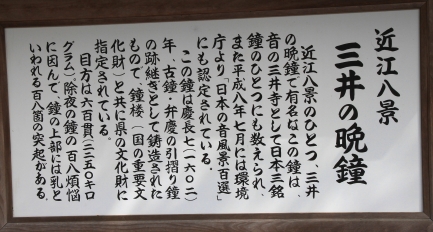 近江八景
三井の晩鐘
近江八景のひとつ、三井
の晩鐘で有名なこの鐘は、
音の三井寺として日本三銘
鐘のひとつにも数えられ、
また平成八年七月には環境
庁より「日本の音風景百選」
にも認定されている。
この鐘は慶長七(一六〇二)
年、古鐘・弁慶の引摺り鐘
の跡継ぎとして鋳造された
もので、鐘楼(国の重要文
化財)と共に県の文化財に
指定されている。
目方は六百貫(二二五〇キロ
グラム)。除夜の鐘の百八煩悩
に因んで、鐘の上部には乳と
いわれる百八箇の突起がある。